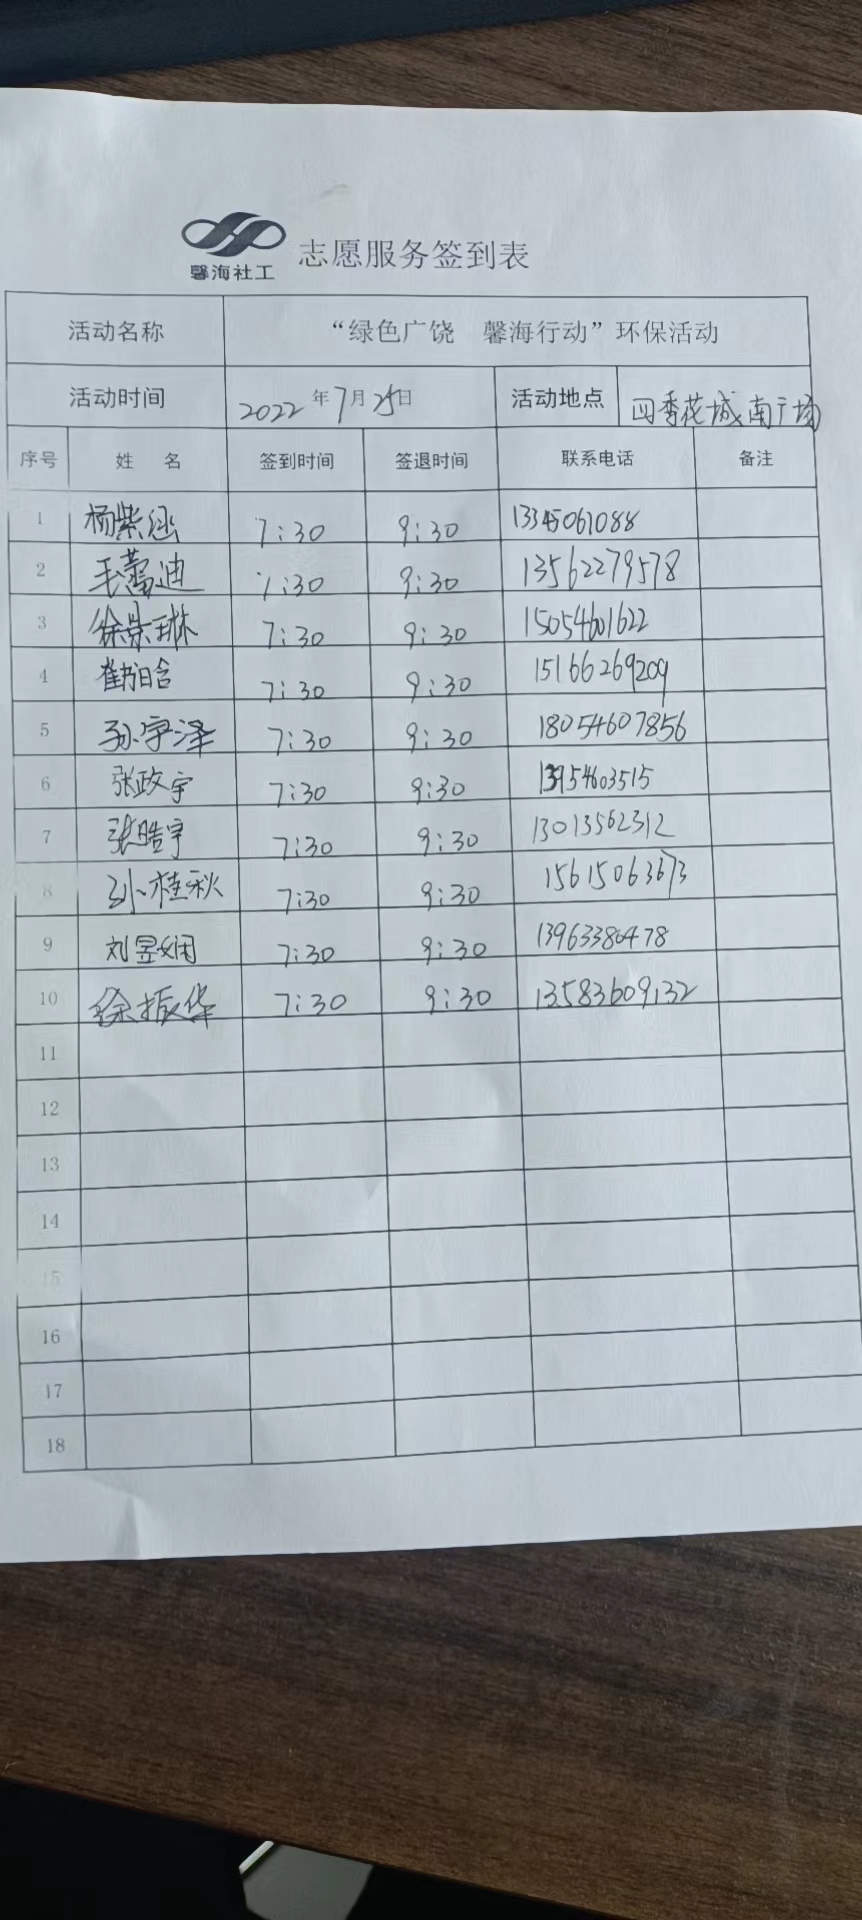 馨海社工 志愿服务签到表
活动名称 “绿色广饶 馨海行动”环保活动
活动时间 2022年7月25日 活动地点 四季花城南广场
序号 姓 名 签到时间 签退时间 联系电话 备注
1 杨紫涵 7:30 9:30 13345061088
2 毛蕾迪 7:30 9:30 13562279578
3 徐景琳 7:30 9:30 15054601622
4 7:30 9:30 15166269209
5 孙宇泽 7:30 9:30 18054607856
6 张政宇 7:30 9:30 13954603515
7 张皓宇 7:30 9:30 13013562312
8 孙桂秋 7:30 9:30 15615063673
9 刘昱娴 7:30 9:30 13963380478
10 徐振华 7:30 9:30 13583609132
11
12
13
14
15
16
17
18